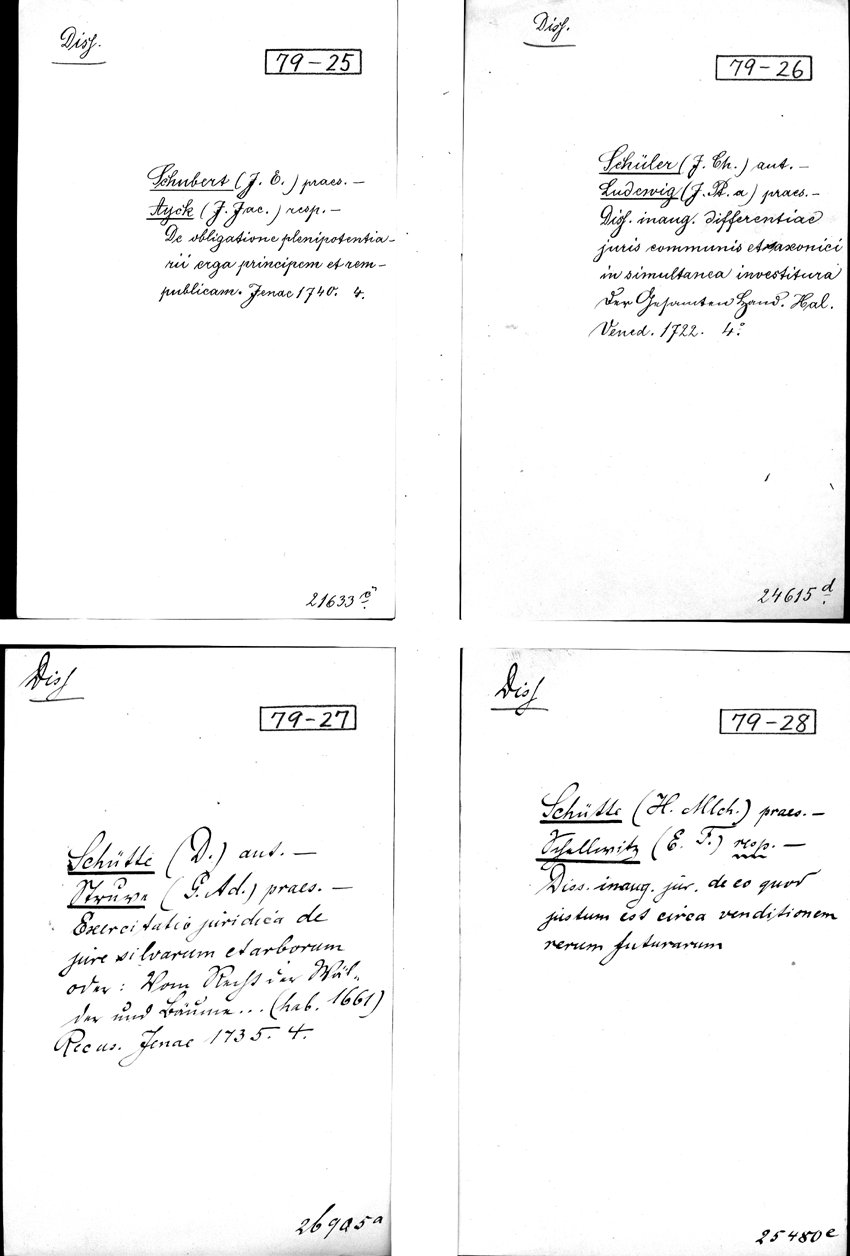 Diss.
79-25
Schubert (J. E.) praes. —
Ayck (J. Jac.) resp. —
De obligatione plenipotentia-
rii erga principem et rem-
publicam. Jenae 1740. 4.
21633
Diss.
79-26
Schüler (J. Ch.) aut. —
Ludewig (J. P. a) praes. —
Diss. inaug. differentiae
juris communis et saxonici
in simultanea investitura
der Gesamten Hand. Hal.
Vened. 1722. 4°.
24615 d.
Diss
79-27
Schütte (D.) aut. —
Struve (G. Ad.) praes. —
Exercitatio juridica de
jure silvarum et arborum
oder: Vom Recht der Wäl-
der und Bäume... (hab. 1661)
Recus. Jenae 1735. 4.
26905a
Diss
79-28
Schütte (H. Mlch.) praes. —
Schellwitz (E. F.) resp. —
Diss. inaug. jur. de eo quod
justum est circa venditionem
rerum futurarum
25480e